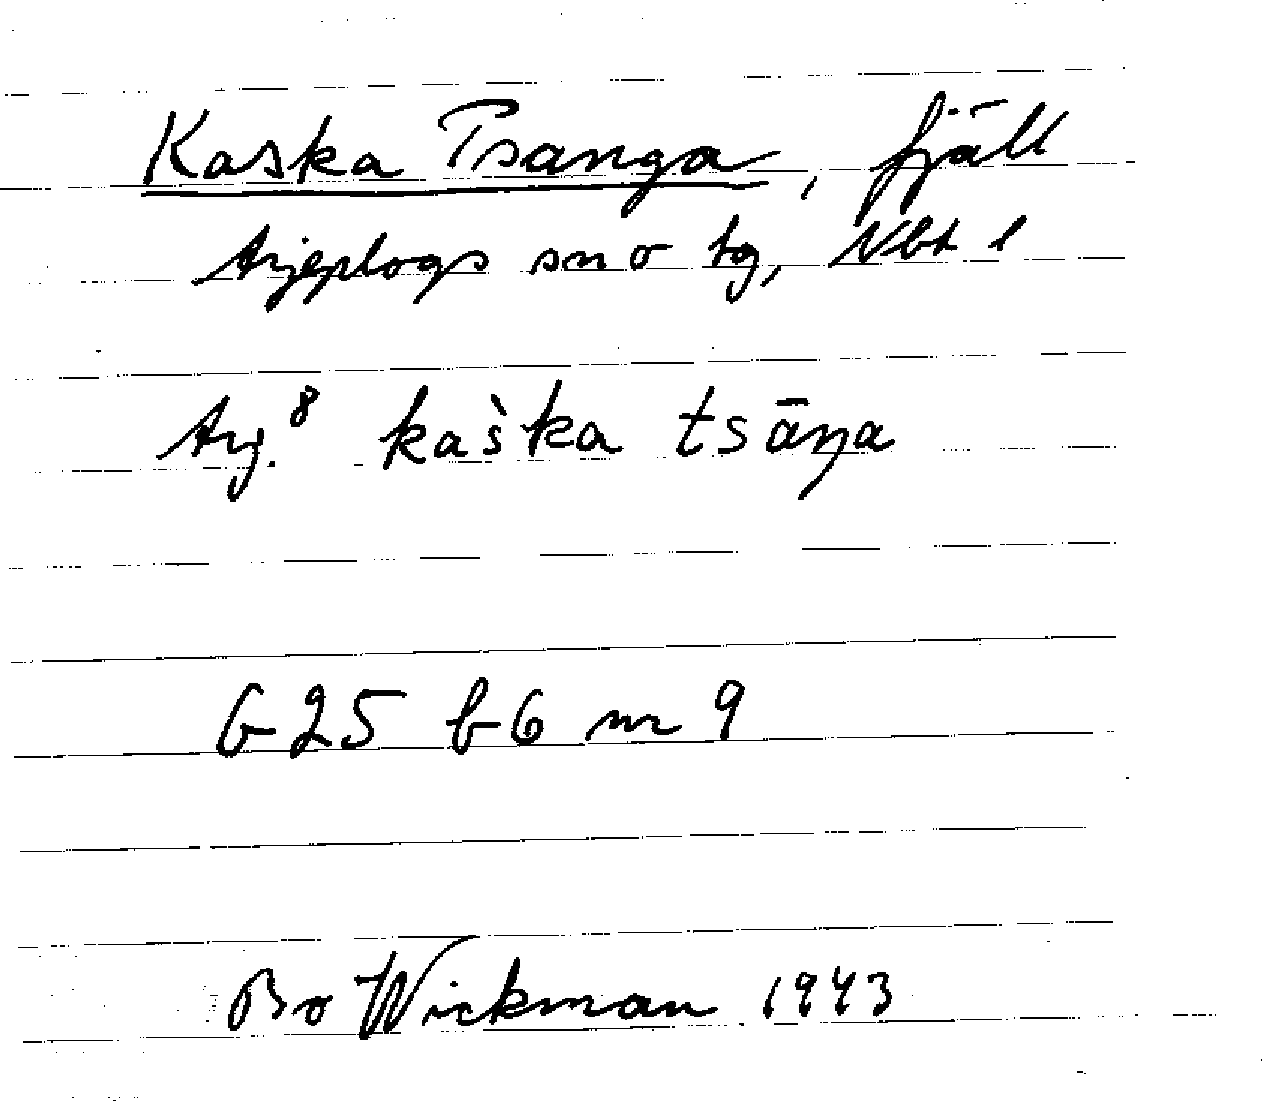 Kaska Tsanga, fjäll
Arjeplogs sn o tg, Nbt l
Arj.⁸ kaš̀ka tsāŋa
G 25 b 6 nr 9
Bo Wickman 1943